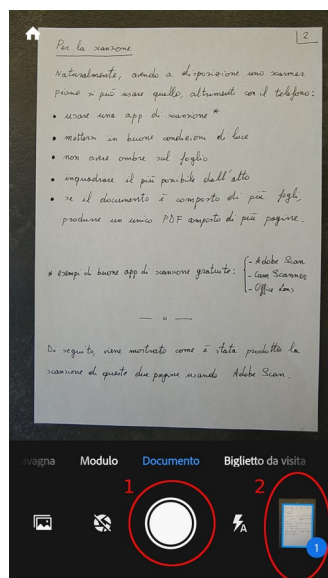 2
Per la scansione
Naturalmente, avendo a disposizione uno scanner
piano si può usare quello, altrimenti con il telefono:
• usare una app di scansione *
• mettersi in buone condizioni di luce
• non avere ombre sul foglio
• inquadrare il più possibile dall'alto
• se il documento è composto di più fogli,
produrre un unico PDF composto di più pagine.
* esempi di buone app di scansione gratuite:
- Adobe Scan
- Cam Scanner
- Office Lens
— o —
Di seguito, viene mostrato come è stata prodotta la
scansione di queste due pagine usando Adobe Scan.
avagna Modulo Documento Biglietto da visita
1 2
A
1